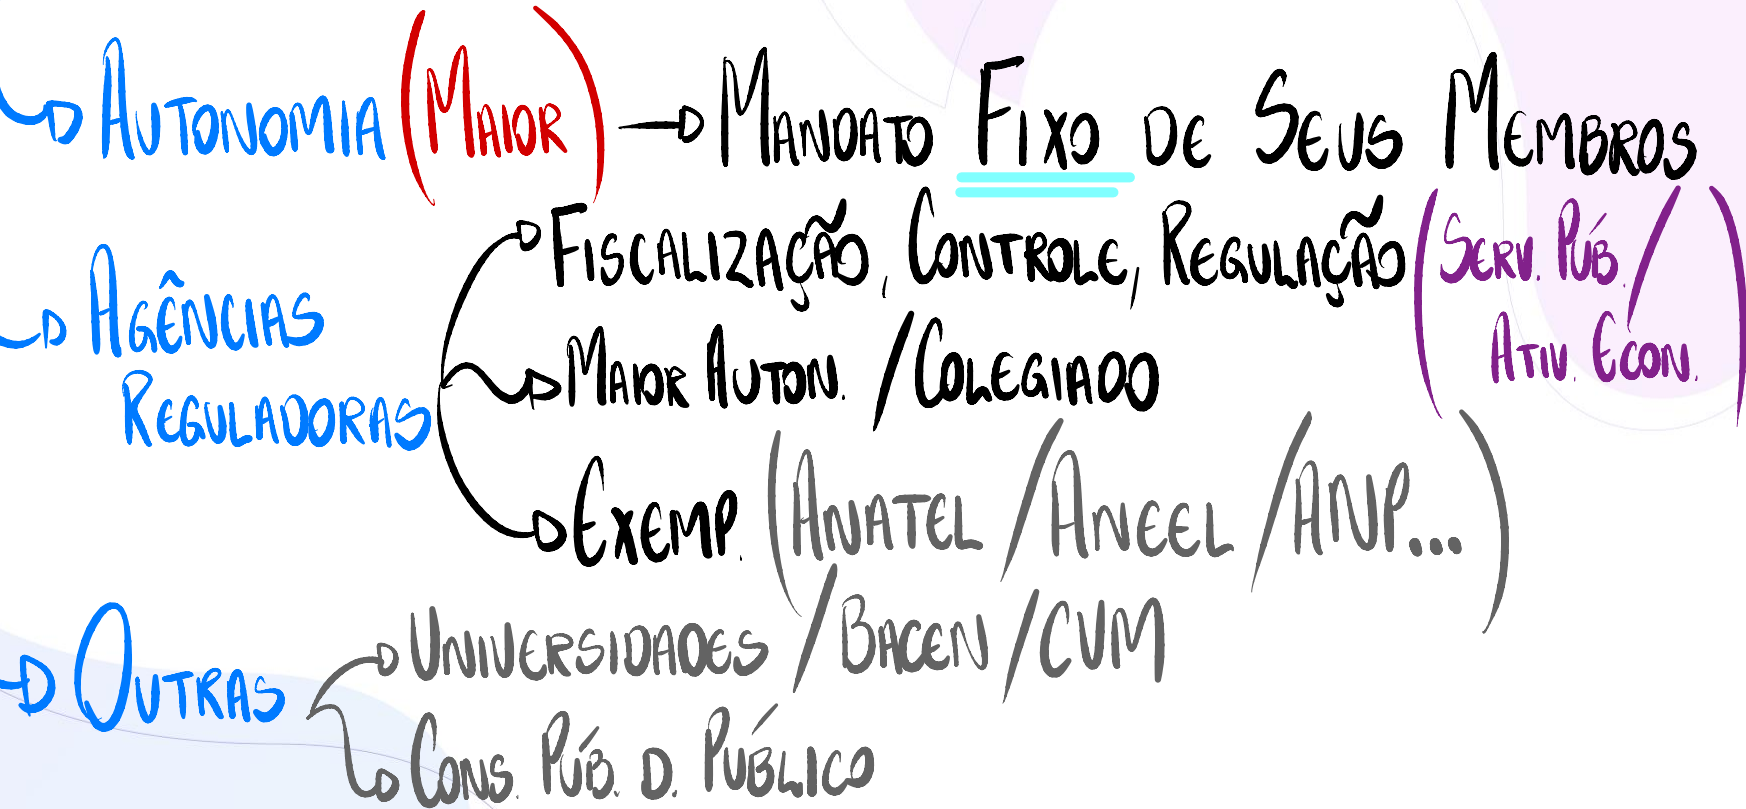 AUTONOMIA (MAIOR) → MANDATO FIXO DE SEUS MEMBROS
AGÊNCIAS REGULADORAS
FISCALIZAÇÃO, CONTROLE, REGULAÇÃO (SERV. PÚB. / ATIV. ECON.)
MAIOR AUTON. / COLEGIADO
EXEMP. (ANATEL / ANEEL / ANP...)
OUTRAS
UNIVERSIDADES / BACEN / CVM
CONS. PÚB. D. PÚBLICO